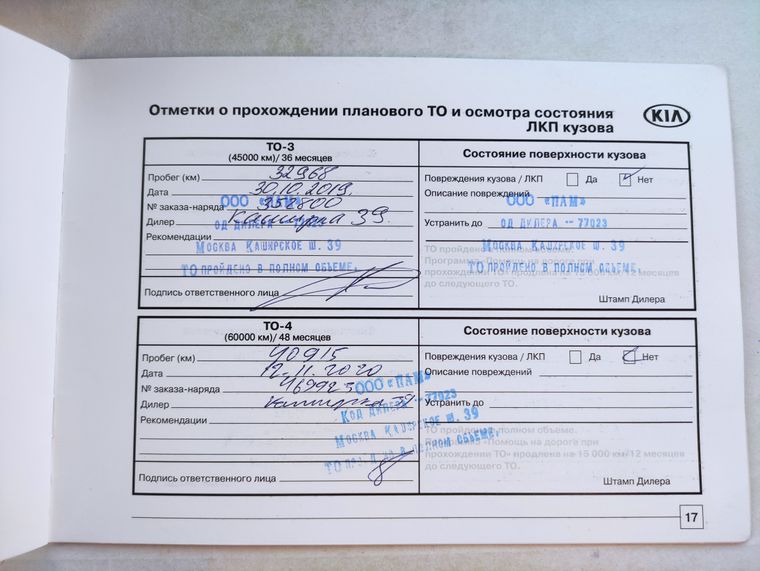 Отметки о прохождении планового ТО и осмотра состояния
ЛКП кузова
KIA
ТО-3
(45000 км)/ 36 месяцев
Состояние поверхности кузова
Пробег (км) 32968
Повреждения кузова / ЛКП Да Нет
Дата 30.10.2019.
Описание повреждений
№ заказа-наряда 352800
ООО «ПАМ»
ООО «ПАМ»
Дилер Каширка 39.
Устранить до
ОД ДИЛЕРА - 77023
ОД ДИЛЕРА - 77023
Рекомендации
МОСКВА КАШИРСКОЕ Ш. 39
МОСКВА КАШИРСКОЕ Ш. 39
ТО пройдено в полном объеме.
Программа «Помощь на дороге при
прохождении ТО» продлена на 15 000 км/12 месяцев
до следующего ТО.
ТО ПРОЙДЕНО В ПОЛНОМ ОБЪЕМЕ.
ТО ПРОЙДЕНО В ПОЛНОМ ОБЪЕМЕ.
Подпись ответственного лица
Штамп Дилера
ТО-4
(60000 км)/ 48 месяцев
Состояние поверхности кузова
Пробег (км) 40915
Повреждения кузова / ЛКП Да Нет
Дата 12.11.2020
Описание повреждений
№ заказа-наряда 469925
ООО «ПАМ»
Дилер Каширка 39
Устранить до
КОД ДИЛЕРА - 77023
Рекомендации
МОСКВА КАШИРСКОЕ Ш. 39
ТО ПРОЙДЕНО В ПОЛНОМ ОБЪЕМЕ.
ТО пройдено в полном объеме.
Программа «Помощь на дороге при
прохождении ТО» продлена на 15 000 км/12 месяцев
до следующего ТО.
Подпись ответственного лица
Штамп Дилера
17